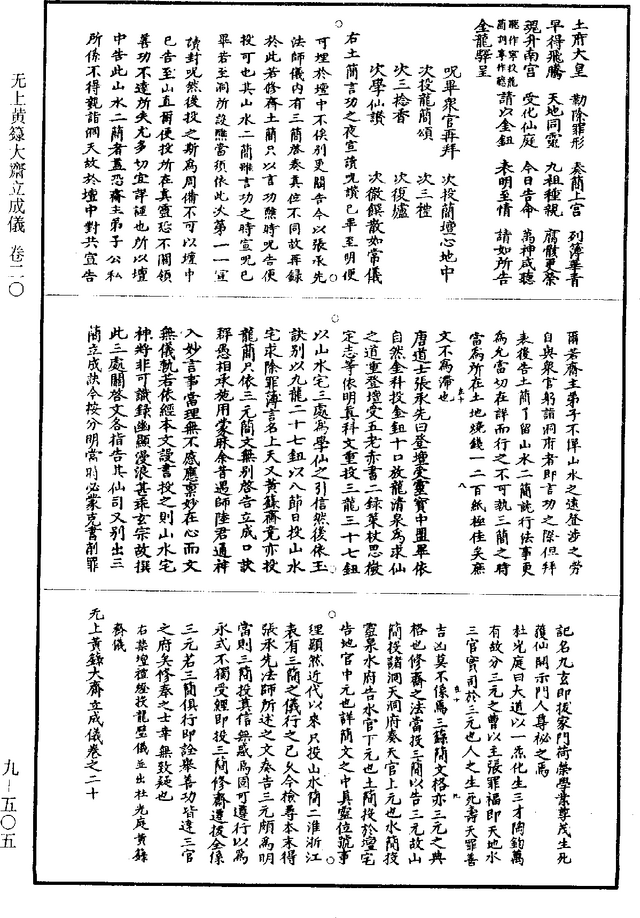 土府大皇　勒除罪形　奏簡上宮　列簿華青
早得飛騰　天地同靈　九祖種親　腐骸更榮
魂升南宮　受化仙庭　今日告命　萬神咸聽
請以金鈕　表明至情　請如所告
金龍驛呈
呪畢衆官再拜　次投簡壇心地中
次投龍簡頌　次三禮
次三捻香　次復爐
次學仙讚　次徹饌散如常儀
右土簡言功之夜宣讀呪讚已畢至明便
可埋於壇中不俟別更關告今以張承先
法師儀內有三簡啓奏真位不同故再録
於此若修齋土簡只以言功醮時呪告便
投可也其山水二簡雖言功之時宣呪已
畢若至洞所設醮當須依此次第一一宣
讀封呪然後投之斯爲周備不可以壇中
已告至山直爾便投所在真靈恐不關領
善功不達所失尤多切宜詳謹也所以壇
中告此山水二簡者蓋恐齋主弟子公私
所係不得親詣洞天故於壇中對共宣告
爾若齋主弟子不憚山水之遠登涉之勞
自與衆官躬詣洞府者即言功之際但拜
表後告土簡了留山水二簡詣行法事更
爲允當切在詳而行之不可執三簡之時
當爲所在土地燒錢一二百紙極佳矣庶
文不爲滯也
唐道士張承先曰登壇受靈寶中盟畢依
自然金科投金鈕十口放龍清泉爲求仙
之道重登壇受五老赤書二籙策杖思微
定志等依明真科文重投三龍三十七鈕
以山水宅三處爲學仙之引信然後依玉
訣別以九龍二十七鈕以八節日投山水
宅求除罪薄言名上天又黃籙齋竟亦投
龍簡只依三元簡文無別啓告立成口訣
群愚相承施用蒙昧余昔遇師陸君通神
入妙言事當理無不感應稟妙在心而文
無儀軌若依經本文設書投之則山水宅
神將非可識録幽顯漫浪甚乖玄宗故撰
此三處關啓文各指告其仙司又別出三
簡立成訣今按分明當則必蒙克書削罪
記名九玄即拔家門荷榮學業尊茂生死
獲仙開示門人尊祕之焉
杜光庭曰大道以一炁化生三才陶鈞萬
有故分三元之曹以主張罪福即天地水
三官實司於三元也人之生死壽夭罪善
吉凶莫不係焉三籙簡文格亦三元之典
格也修齋之法當投三簡以告三元故山
簡投諸洞天洞府奏天官上元也水簡投
靈泉水府告水官下元也土簡投於壇宅
告地官中元也詳簡文之中具靈位號事
理顯然近代以來只投山水簡二淮浙江
表有三簡之儀行之已久今檢尋本末得
張承先法師所述之文奏告三元頗爲明
當則三簡投真信無惑焉固可遵行以爲
永式不獨受經即投三簡修齋遷拔全係
三元若三簡俱行即詮舉善功皆達三官
之府矣修奉之士幸無致疑也
右禁壇禮經投龍壁儀並出杜光庭黃籙
齋儀
无上黃籙大齋立成儀卷之二十
无上黄籙大齋立成儀　卷二〇
九—五〇五